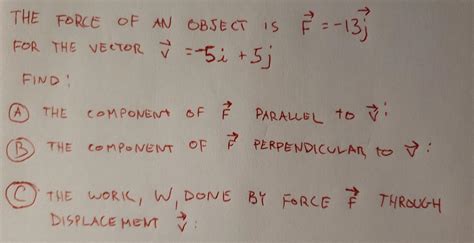 THE FORCE OF AN OBJECT IS F⃗ = -13j⃗
FOR THE VECTOR v⃗ = -5i + 5j
FIND:
Ⓐ THE COMPONENT OF F⃗ PARALLEL TO v⃗:
Ⓑ THE COMPONENT OF F⃗ PERPENDICULAR TO v⃗:
Ⓒ THE WORK, W, DONE BY FORCE F⃗ THROUGH
DISPLACEMENT v⃗: